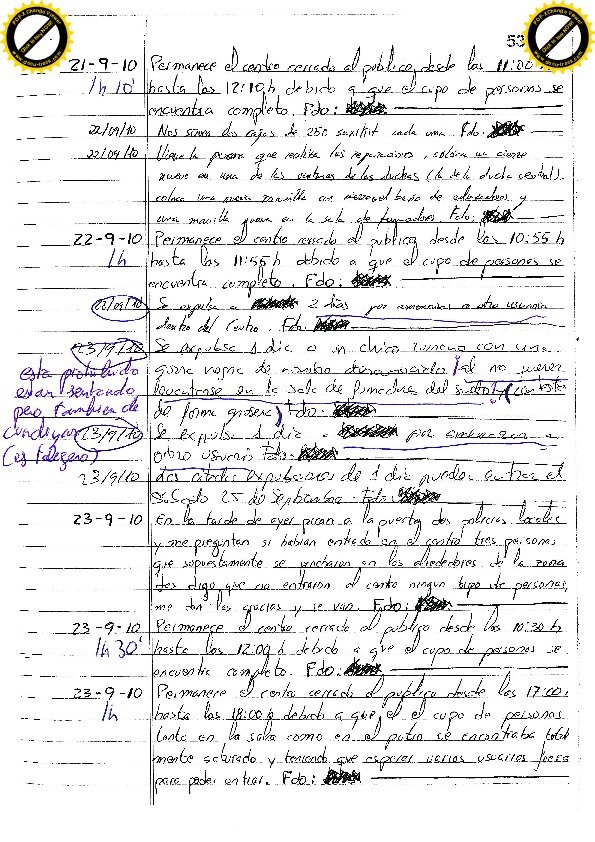 53
21-9-10 Permanece el centro cerrado al publico, desde las 11:00
1h 10' hasta las 12:10h debido a que el cupo de personas se
encuentra completo. Fdo:
22/09/10 Nos sirven dos cajas de 250 cada una Fdo:
22/09/10 Llega la persona que realiza las reparaciones, coloca un cierre
nuevo en una de las ventanas de las duchas (la de la ducha central).
coloca una nueva manilla en y
una manilla nueva en la sala de fumadores. Fdo:
22-9-10 Permanece el centro cerrado al publico, desde las 10:55 h
1h hasta las 11:55 h debido a que el cupo de personas se
encuentra completo. Fdo:
22/09/10 Se expulsa a 2 dias por amenazas a otro usuario
dentro del Centro. Fdo:
23/9/10 Se expulsa 1 dia a un chico con una
esta prohibido gorra negra de al no querer
estar sentado levantarse en la sala de fumadores del
pero tambien de de forma grosera) Fdo:
23/9/10 Se expulsa 1 dia a por amenazar a
otro usuario Fdo:
23/9/10 Los citados expulsados de 1 dia pueden entrar el
Sabado 25 de Septiembre. Fdo:
23-9-10 En la tarde de ayer pican a la puerta dos policias locales
y me preguntan si habian entrado en el centro tres personas
que supuestamente se en los alrededores de la zona
les digo que no entraron al centro ningun tipo de personas,
me dan las gracias y se van. Fdo:
23-9-10 Permanece el centro cerrado al publico desde las 10:30 h
1h 30' hasta las 12:00 h debido a que el cupo de personas se
encuentra completo. Fdo:
23-9-10 Permanece el centro cerrado al publico desde las 17:00
1h hasta las 18:00 h debido a que el el cupo de personas
tanto en la sala como en el patio se encontraba total
mente saturado y teniendo que esperar varios usuarios fuera
para poder entrar. Fdo: